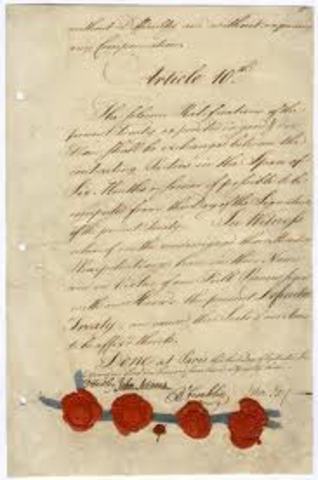 without Difficulty and without requiring
any Compensation.
Article 10th.
The solemn Ratifications of the
present Treaty expedited in good & due
Form shall be exchanged between the
contracting Parties in the Space of
Six Months or sooner if possible to be
computed from the Day of the Signature
of the present Treaty. In Witness
whereof we the undersigned their Ministers
Plenipotentiary have in their Name
and in Virtue of our Full Powers signed
with our Hands the present Definitive
Treaty, and caused the Seals of our Arms
to be affix'd thereto.
Done at Paris, this third Day of September,
John Adams B Franklin John Jay